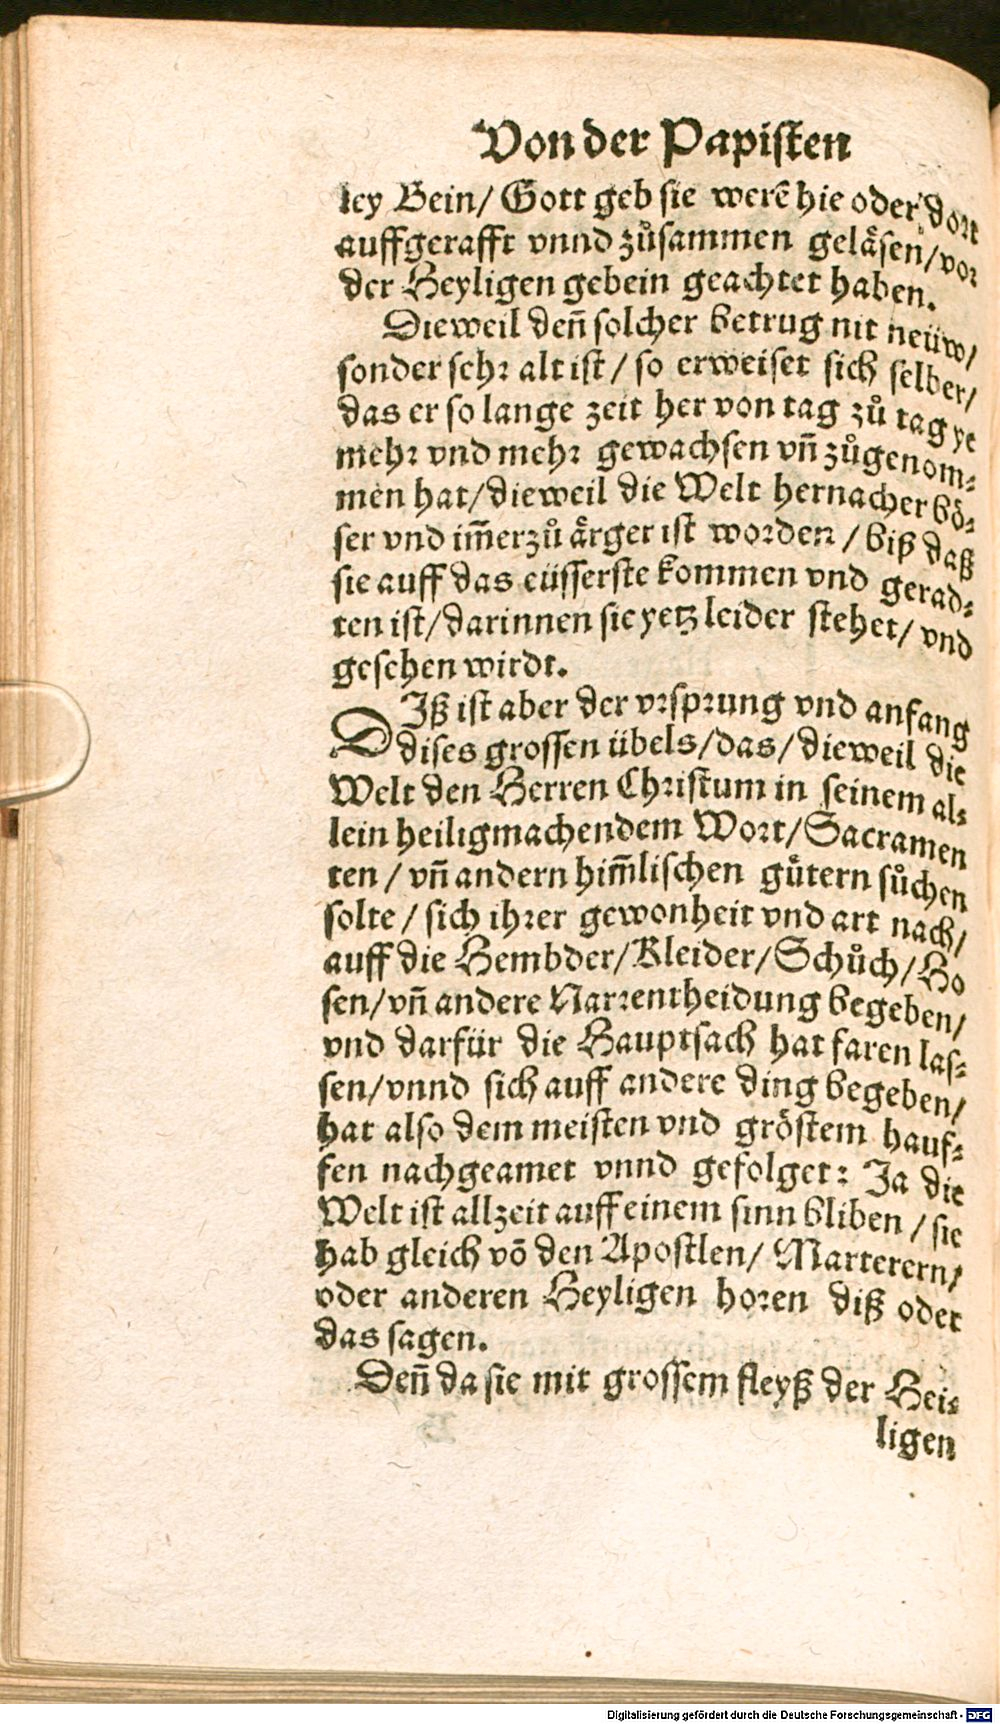 Von der Papisten
ley Bein/ Gott geb sie werẽ hie oder dort
auffgerafft vnnd zůsammen geläsen/ vor
der Heyligen gebein geachtet haben.
Dieweil deñ solcher betrug nit neüw/
sonder sehr alt ist/ so erweiset sich selber/
das er so lange zeit her von tag zů tag ye
mehr vnd mehr gewachsen vñ zůgenom-
men hat/ dieweil die Welt hernacher bö-
ser vnd im̃erzů ärger ist worden/ biß daß
sie auff das eüsserste kommen vnd gerad-
ten ist/ darinnen sie yetz leider stehet/ vnd
gesehen wirdt.
DIß ist aber der vrsprung vnd anfang
dises grossen übels/ das/ dieweil die
Welt den Herren Christum in seinem al-
lein heiligmachendem Wort/ Sacramen
ten/ vñ andern him̃lischen gütern sůchen
solte/ sich ihrer gewonheit vnd art nach/
auff die Hembder/ Kleider/ Schůch/ Ho
sen/ vñ andere Narrentheidung begeben/
vnd darfür die Hauptsach hat faren las-
sen/ vnnd sich auff andere ding begeben/
hat also dem meisten vnd gröstem hauf-
fen nachgeamet vnnd gefolget: Ja die
Welt ist allzeit auff einem sinn bliben/ sie
hab gleich võ den Apostlen/ Marterern/
oder anderen Heyligen horen diß oder
das sagen.
Deñ da sie mit grossem fleyß der Hei-
ligen
Digitalisierung gefördert durch die Deutsche Forschungsgemeinschaft - DFG